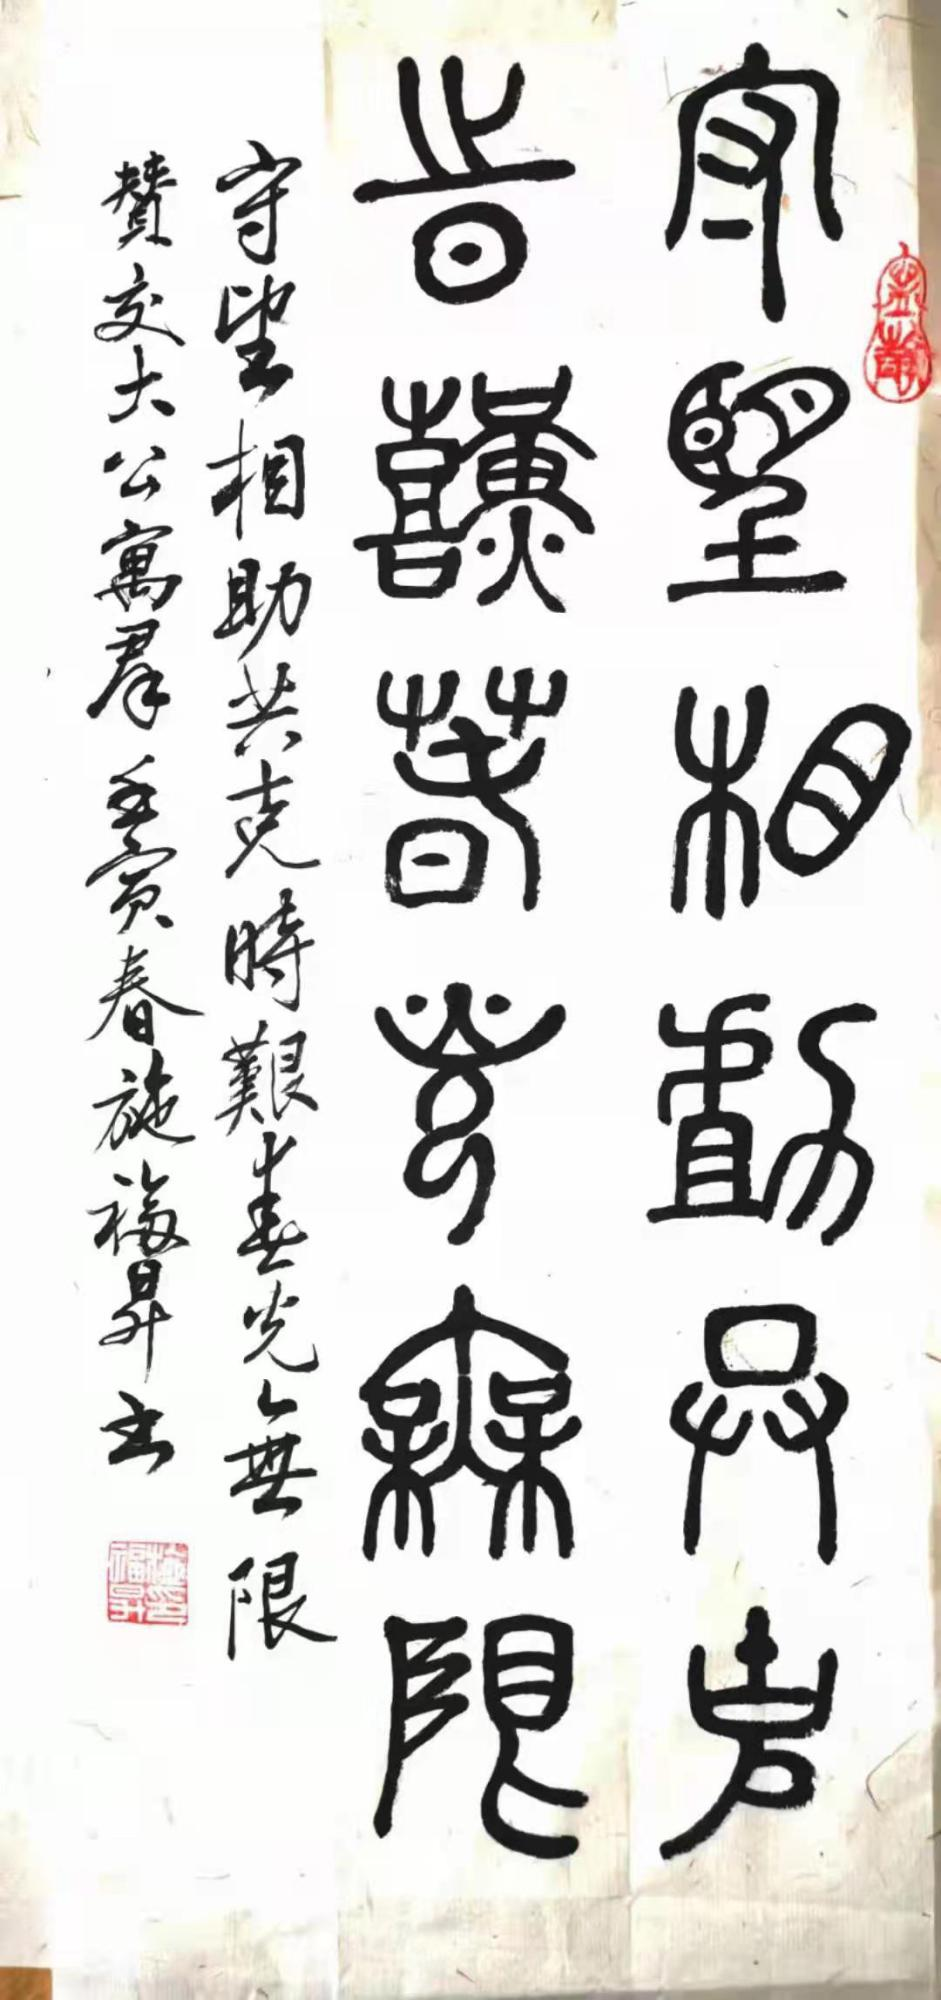 守望相助共克
時艱春光無限
守望相助共克時艱春光無限
贊交大公寓群壬寅春施福昇书
施福昇印